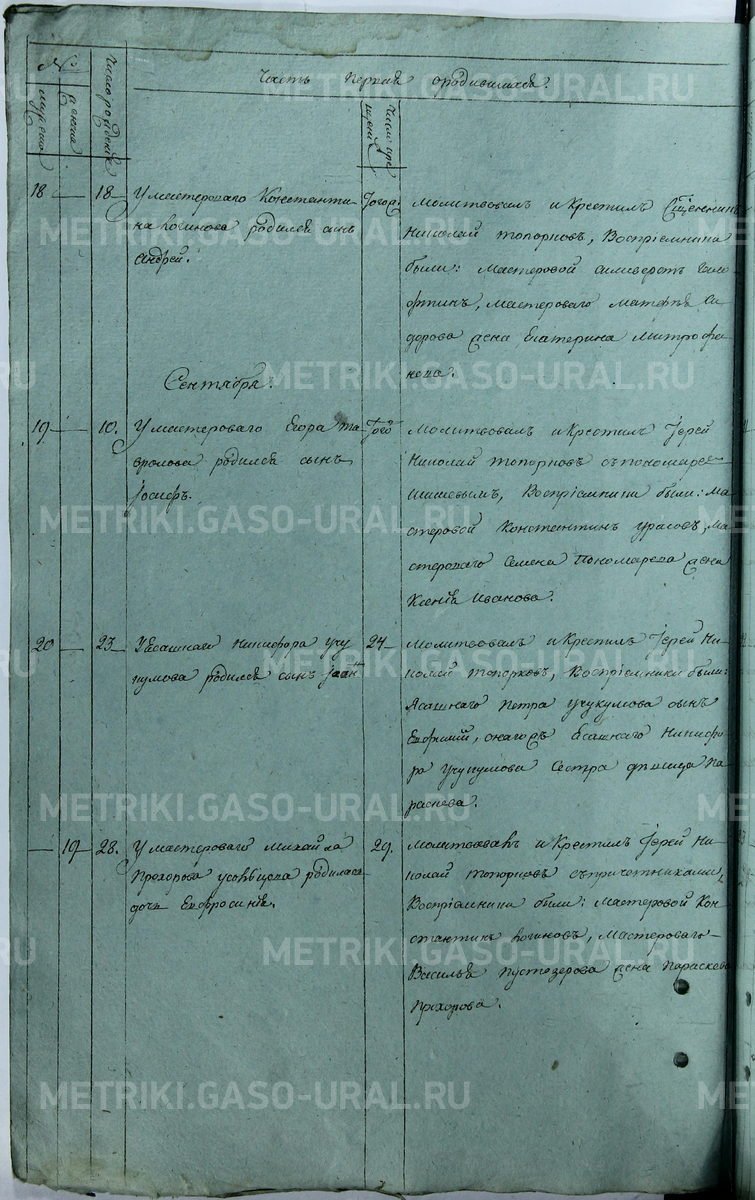 Часть первая о родившихся.
№
мужеска
женска
Число рождения
Число крещения
18
18
У мастероваго Константи-
на родился сынъ
Андрей.
Тогожъ
Молитвовалъ и крестилъ Священникъ
Николай Топорковъ, Воспрiемники
были: Мастеровой
мастероваго Матвѣя Си-
дорова жена Екатерина Митрофа-
нова.
Сентябрь.
19
10.
У мастероваго Егора
родился сынъ
Iосифъ.
Того
Молитвовалъ и крестилъ Iерей
Николай Топорковъ съ пономаремъ
Воспрiемники были: Ма-
стеровой Константинъ Ма-
стероваго Семена Пономарева жена
Ксенiя Иванова.
20
23
У Ясашнаго Никифора Учу-
кумова родился сынъ Iоаннъ
24
Молитвовалъ и крестилъ Iерей Ни-
колай Топорковъ, Воспрiемники были:
Ясашнаго Петра Учукумова сынъ
Евфимий, Ясашнаго Никифо-
ра Учукумова сестра девица Па-
раскева.
19
28.
У мастероваго Михайла
Прохорова родилась
дочь Евфросинiя.
29.
Молитвовалъ и крестилъ Iерей Ни-
колай Топорковъ съ причетниками,
Воспрiемники были: мастеровой Кон-
стантинъ Мастероваго
Василья Пустозерова жена Параскева
Прохорова.
METRIKI.GASO-URAL.RU